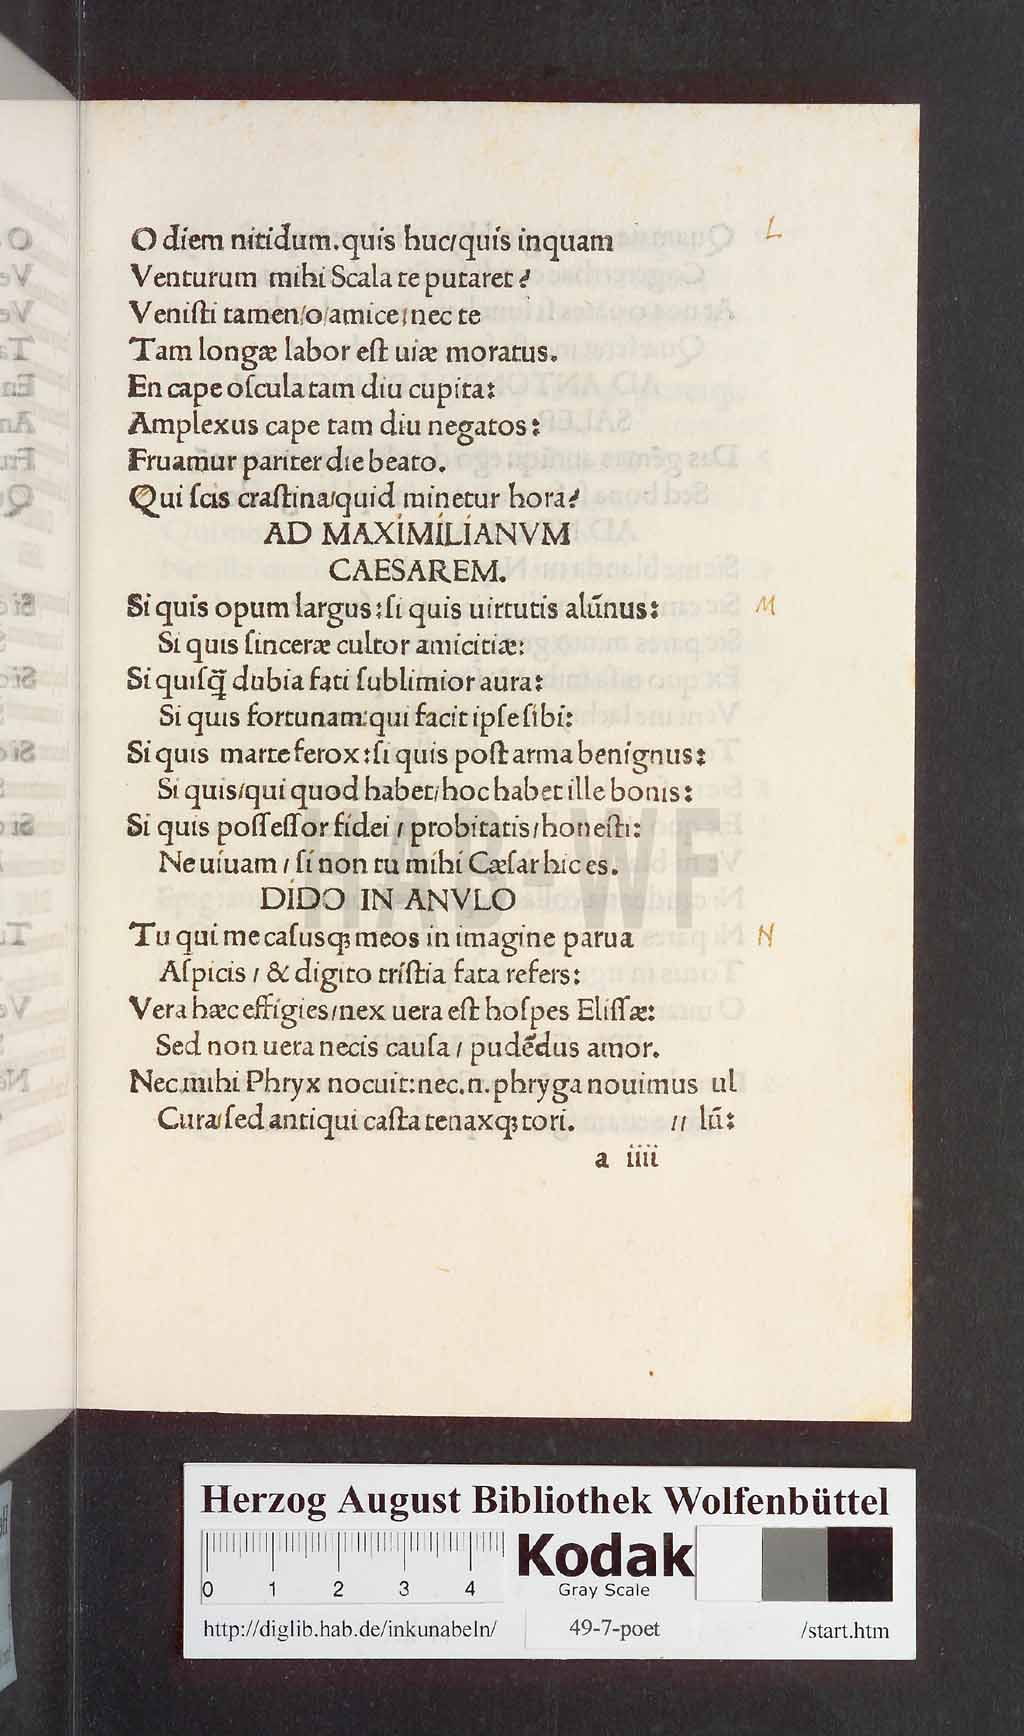 O diem nitidum.quis huc/quis inquam L
Venturum mihi Scala te putaret?
Veniſti tamen/o/amice/nec te
Tam longæ labor eſt uiæ moratus.
En cape oſcula tam diu cupita:
Amplexus cape tam diu negatos:
Fruamur pariter die beato.
Qui ſcis craſtina/quid minetur hora?
AD MAXIMILIANVM
CAESAREM.
Si quis opum largus:ſi quis uirtutis alūnus: M
Si quis ſinceræ cultor amicitiæ:
Si quiſq̃ dubia fati ſublimior aura:
Si quis fortunam:qui facit ipſe ſibi:
Si quis marte ferox:ſi quis poſt arma benignus:
Si quis/qui quod habet/hoc habet ille bonis:
Si quis poſſeſſor fidei / probitatis/honeſti:
Ne uiuam / ſi non tu mihi Cæſar hic es.
DIDO IN ANVLO
Tu qui me caſusq; meos in imagine parua N
Aſpicis / & digito triſtia fata refers:
Vera hæc effigies/nex uera eſt hoſpes Eliſſæ:
Sed non uera necis cauſa / pudēdus amor.
Nec mihi Phryx nocuit:nec.n.phryga nouimus ul
Cura/ſed antiqui caſta tenaxq; tori. // lū:
a iiii
HAB-WF
Herzog August Bibliothek Wolfenbüttel
0 1 2 3 4
Kodak
Gray Scale
http://diglib.hab.de/inkunabeln/ 49-7-poet /start.htm